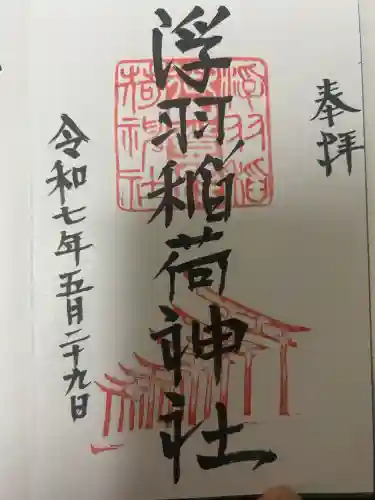 奉拝
浮羽稲荷神社
令和七年五月二十九日
浮羽稲
荷神社